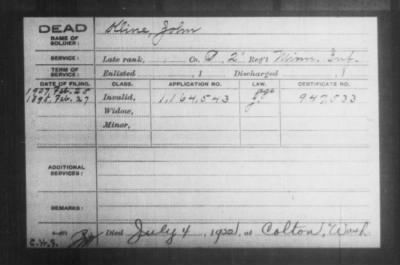 DEAD
NAME OF SOLDIER:
Kline, John
SERVICE:
Late rank, Co. D, 2" Reg't Minn. Inf.
TERM OF SERVICE:
Enlisted , 1 Discharged , 1
DATE OF FILING. CLASS. APPLICATION NO. LAW. CERTIFICATE NO.
1907, Feb. 25 age
1895, Feb. 27 Invalid, 1,164,543 947533
Widow,
Minor,
ADDITIONAL SERVICES:
REMARKS:
Died July 4, 1922, at Colton, Wash